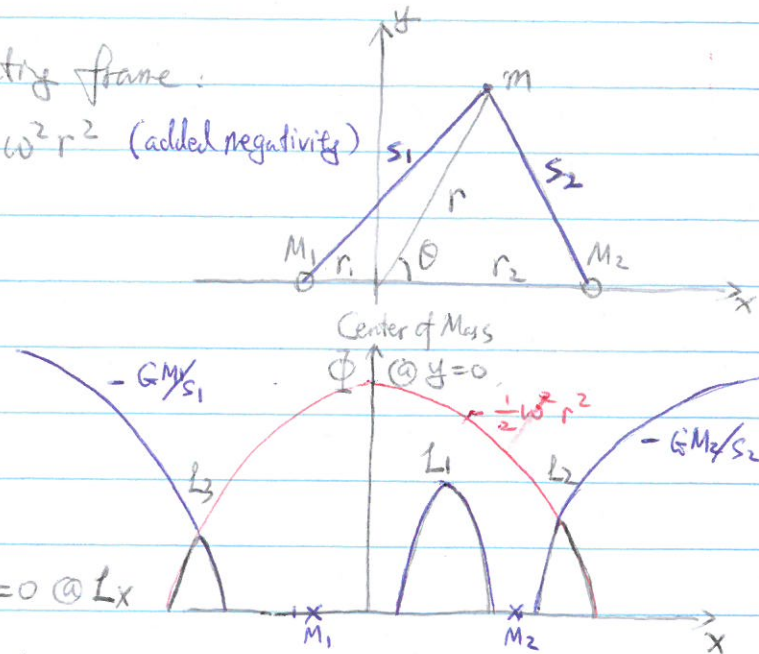 ting frame:
ω² r² (added negativity)
y
m
S₁
S₂
r
M₁
r₁
θ
r₂
M₂
x
Center of Mass
Φ @ y=0
- GM₁/S₁
- ½ω² r²
- GM₂/S₂
L₃
L₁
L₂
=0 @ Lx
M₁
M₂
x